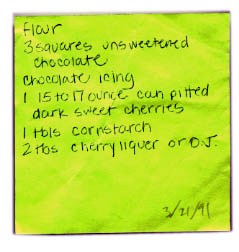 flour
3 squares unsweetened
chocolate
chocolate icing
1 15 to 17 ounce can pitted
dark sweet cherries
1 tbls cornstarch
2 tbs cherry liquer or O.J.
3/21/91